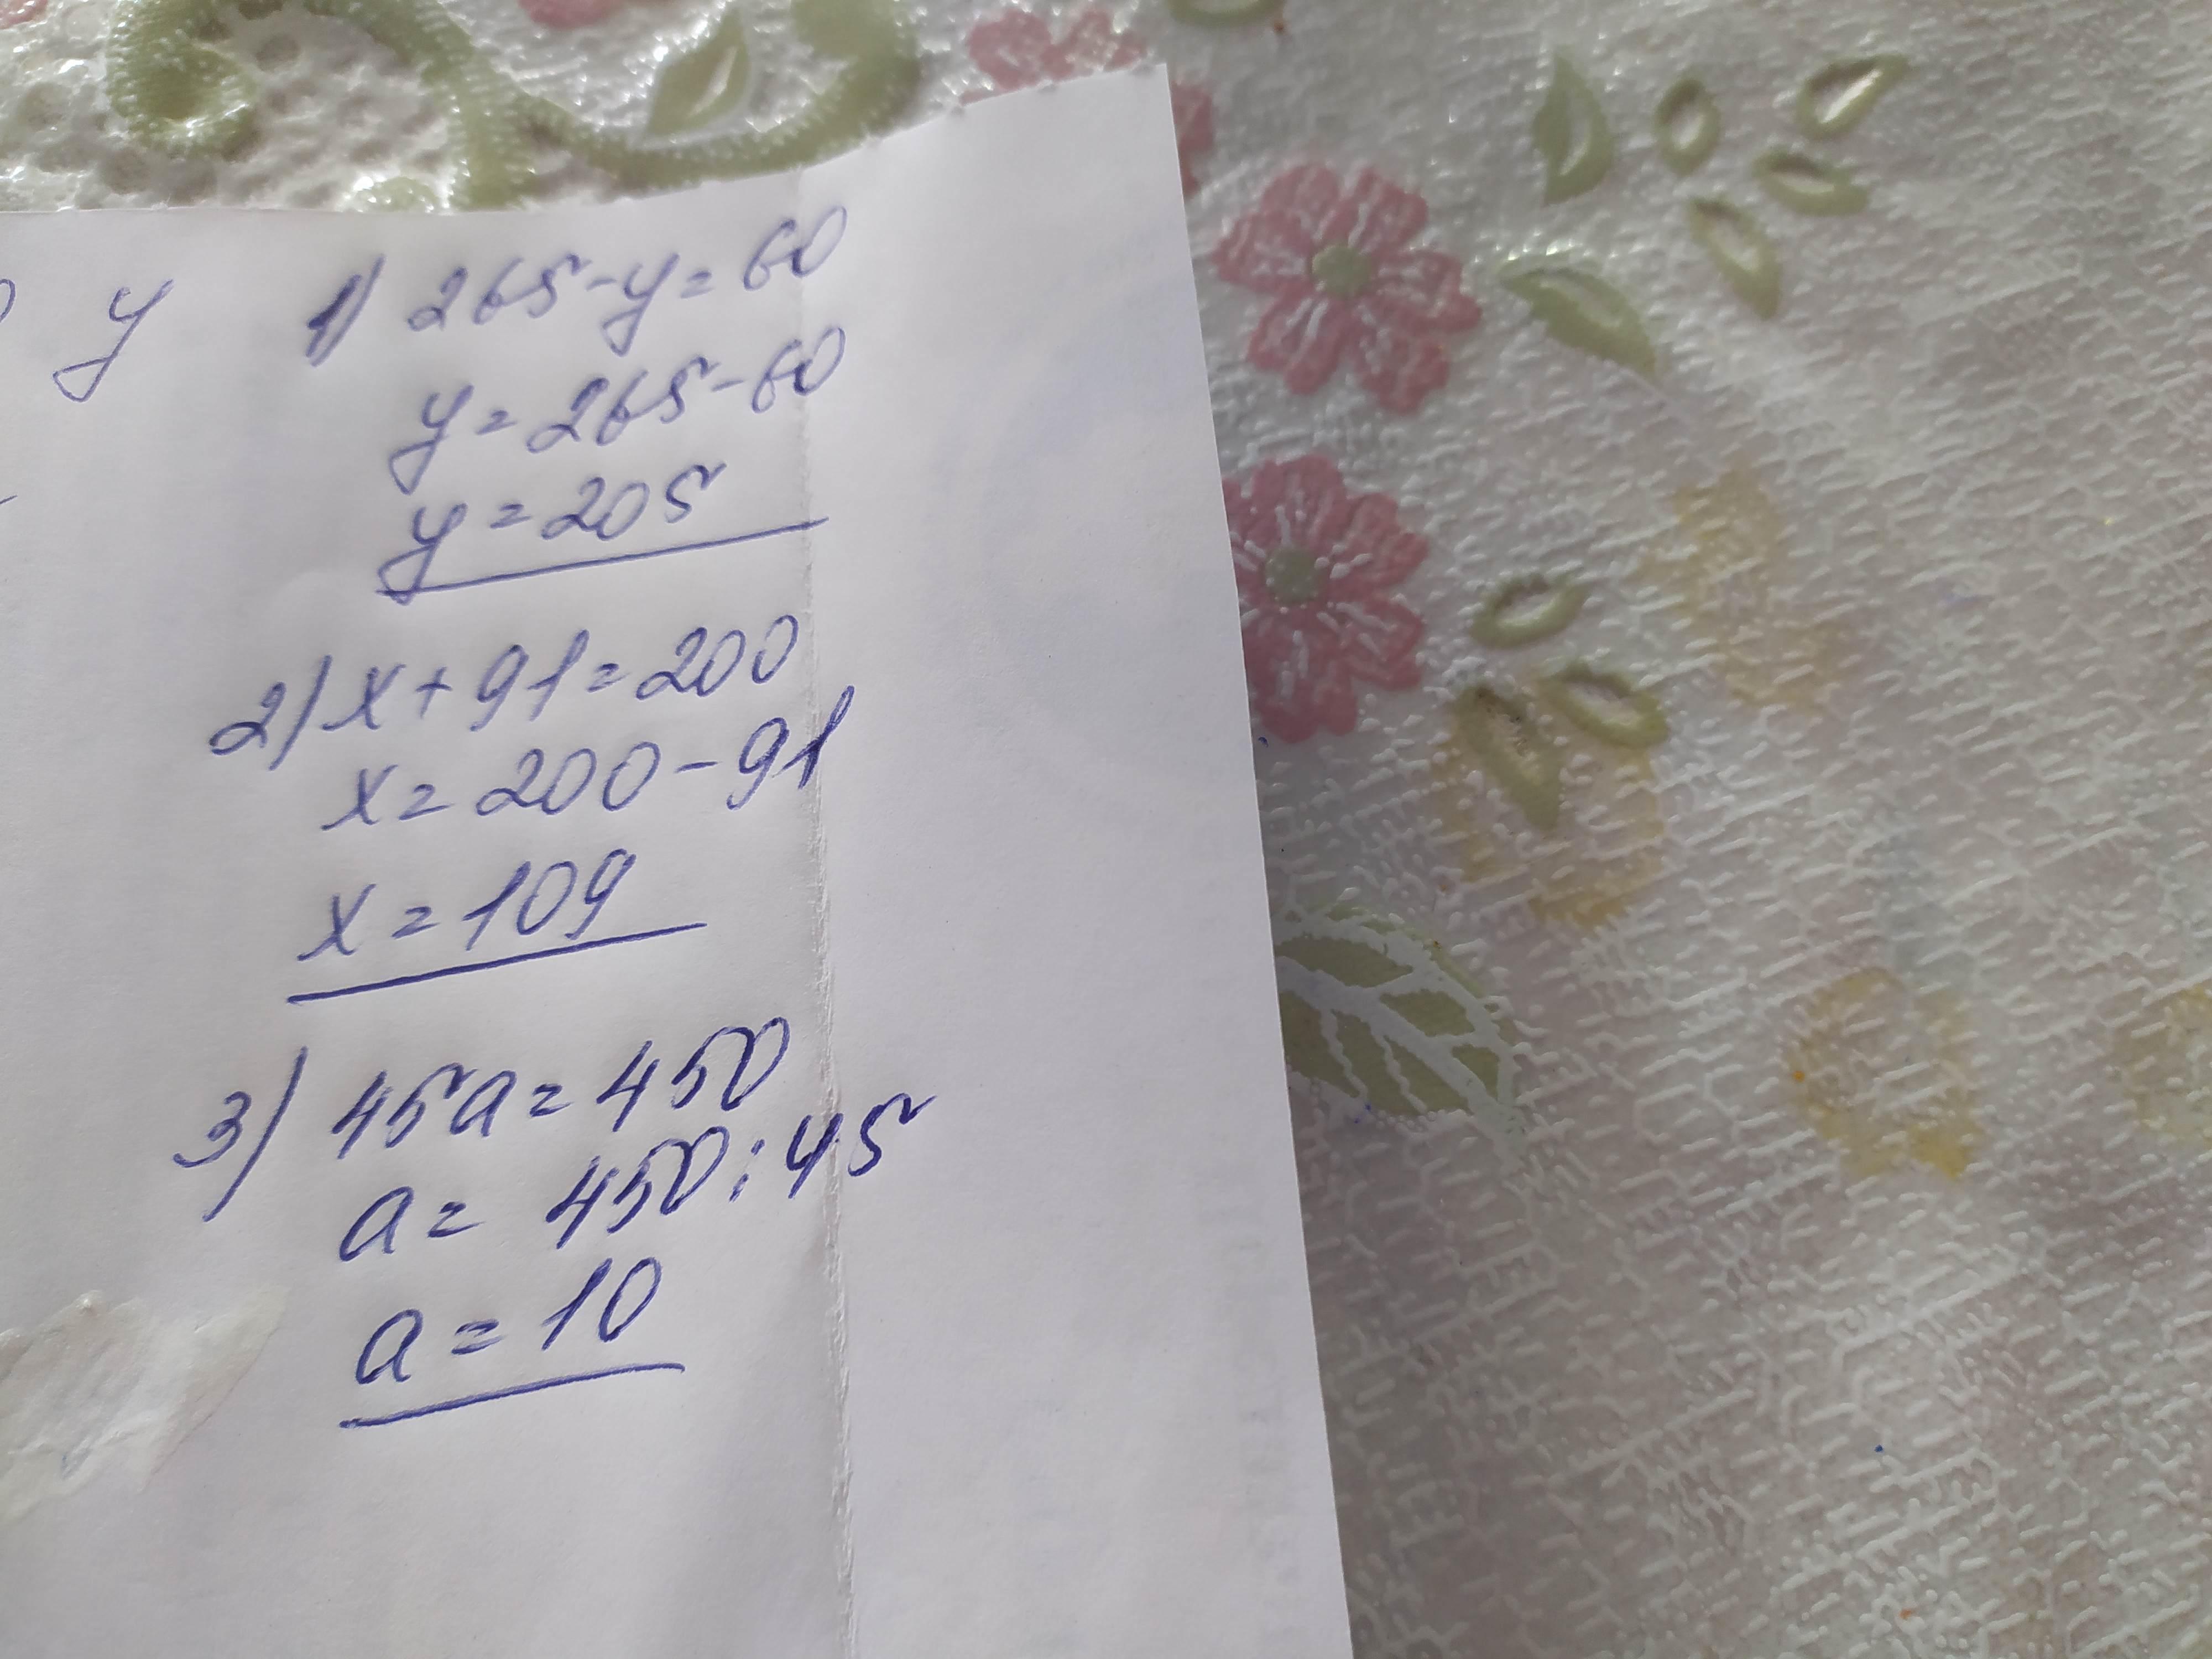 y
1) 265-y=60
y=265-60
y=205
2) x+91=200
x=200-91
x=109
3) 45a=450
a=450:45
a=10